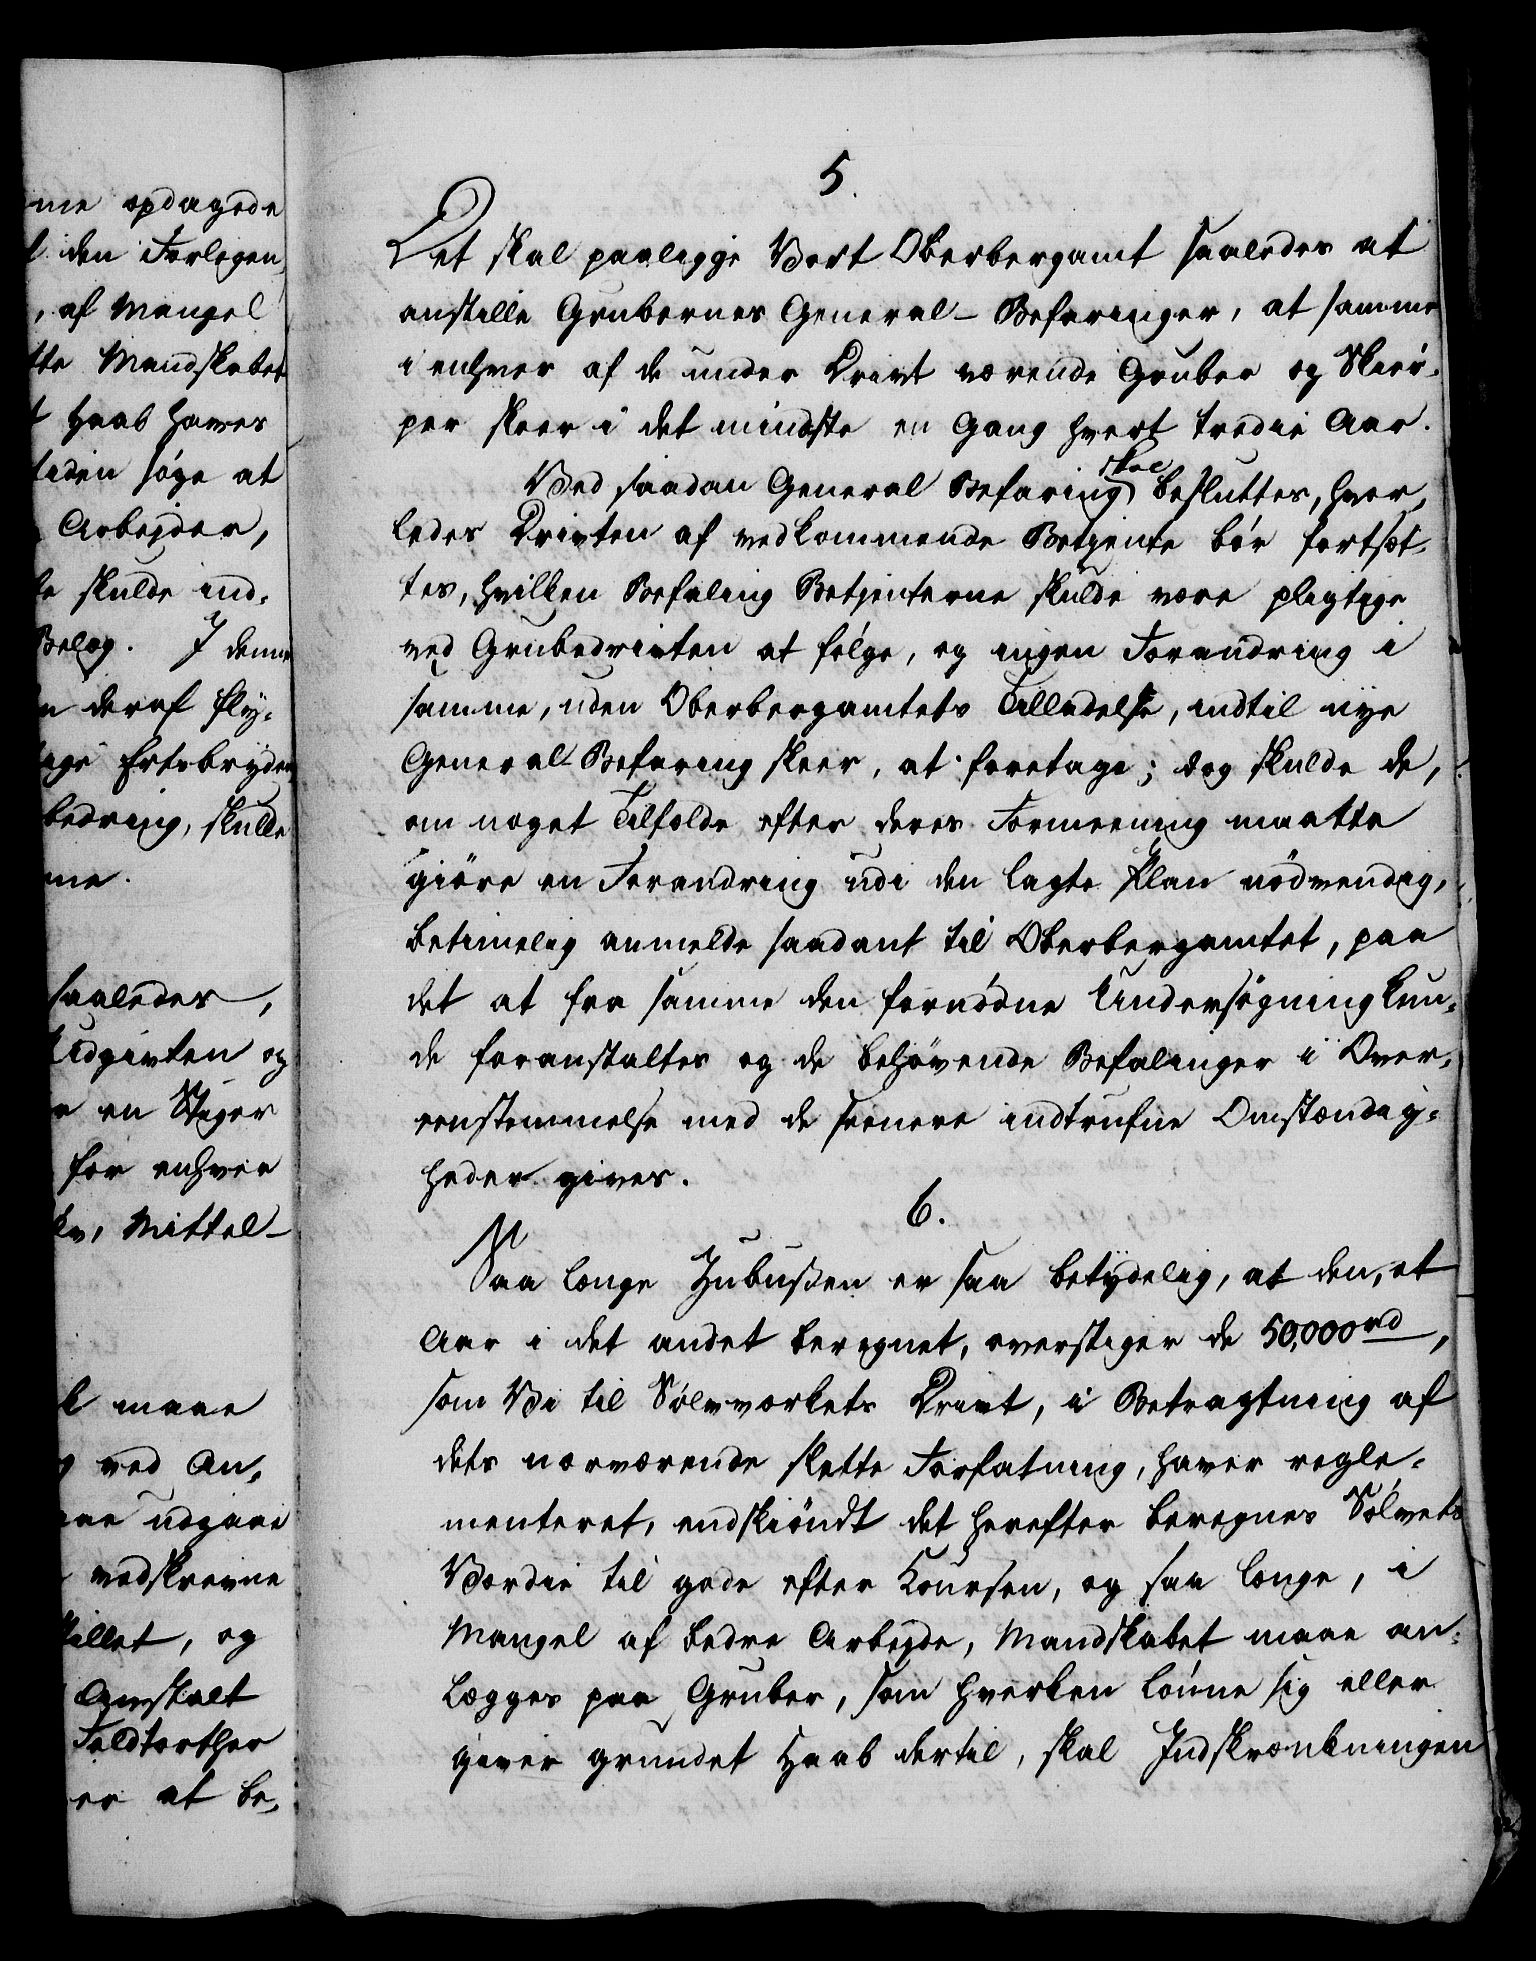 me opdagede
den Forlegen,
, af Mangel
tte Mandskabet
Haab haves
tiden søge at
Arbejder,
skulde ind-
Belæg. I denne
deraf fly-
Ertsbryden
bedring, skulde
me.
saaledes,
Udgivten og
en Stiger
for enhver
Mittel-
maae
ved An,
udgaae
vedskrevne
og
Feldtorther
er at be,
5.
Det skal paaligge Vort Oberbergamt saaledes at
anstille Grubernes General-Befaringer, at samme
i enhver af de under Drivt værende Gruber og Skiør-
per skeer i det mindste en Gang hvert tredie Aar.
Ved saadan General Befaring skal besluttes, hvor,
ledes Drivten af vedkommende Betjente bør fortsæt-
tes, hvilken Befaling Betjenterne skulde være pligtige
ved Grubedrivten at følge, og ingen Forandring i
samme, uden Oberbergamtets Tilladelse, indtil nye
General Befaring skeer, at foretage; dog skulde de,
om noget Tilfælde efter deres Formeening maatte
giøre en Forandring udi den lagte Plan nødvendig,
betimelig anmelde saadant til Oberbergamtet, paa
det at fra samme den fornødne Undersøgning kun-
de foranstaltes og de behøvende Befalinger i Over-
eenstemmelse med de seenere indtrufne Omstændig-
heder gives.
6.
Saa længe Zubußen er saa betydelig, at den, et
Aar i det andet beregnet, overstiger de 50,000 rd,
som Vi til Sølvværkets Drivt, i Betragtning af
dets nærværende slette Forfatning, haver regle-
menteret, endskiøndt det herefter beregnes Sølvets
Værdie til gode efter Coursen, og saa længe, i
Mangel af bedre Arbejde, Mandskabet maae an-
lægges paa Gruber, som hverken lønne sig eller
giver grundet Haab dertil, skal Indskrænkningen